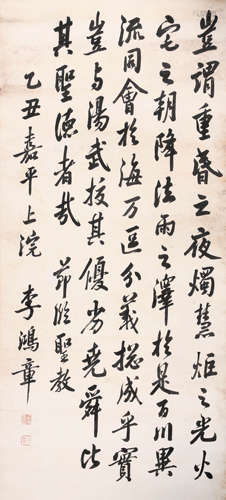 豈謂重昏之夜燭慧炬之光火
宅之朝降法雨之澤於是百川異
流同會於海万區分義揔成乎實
豈与湯武挍其優劣堯舜比
其聖德者哉　節臨聖教
乙丑嘉平上浣　李鴻章